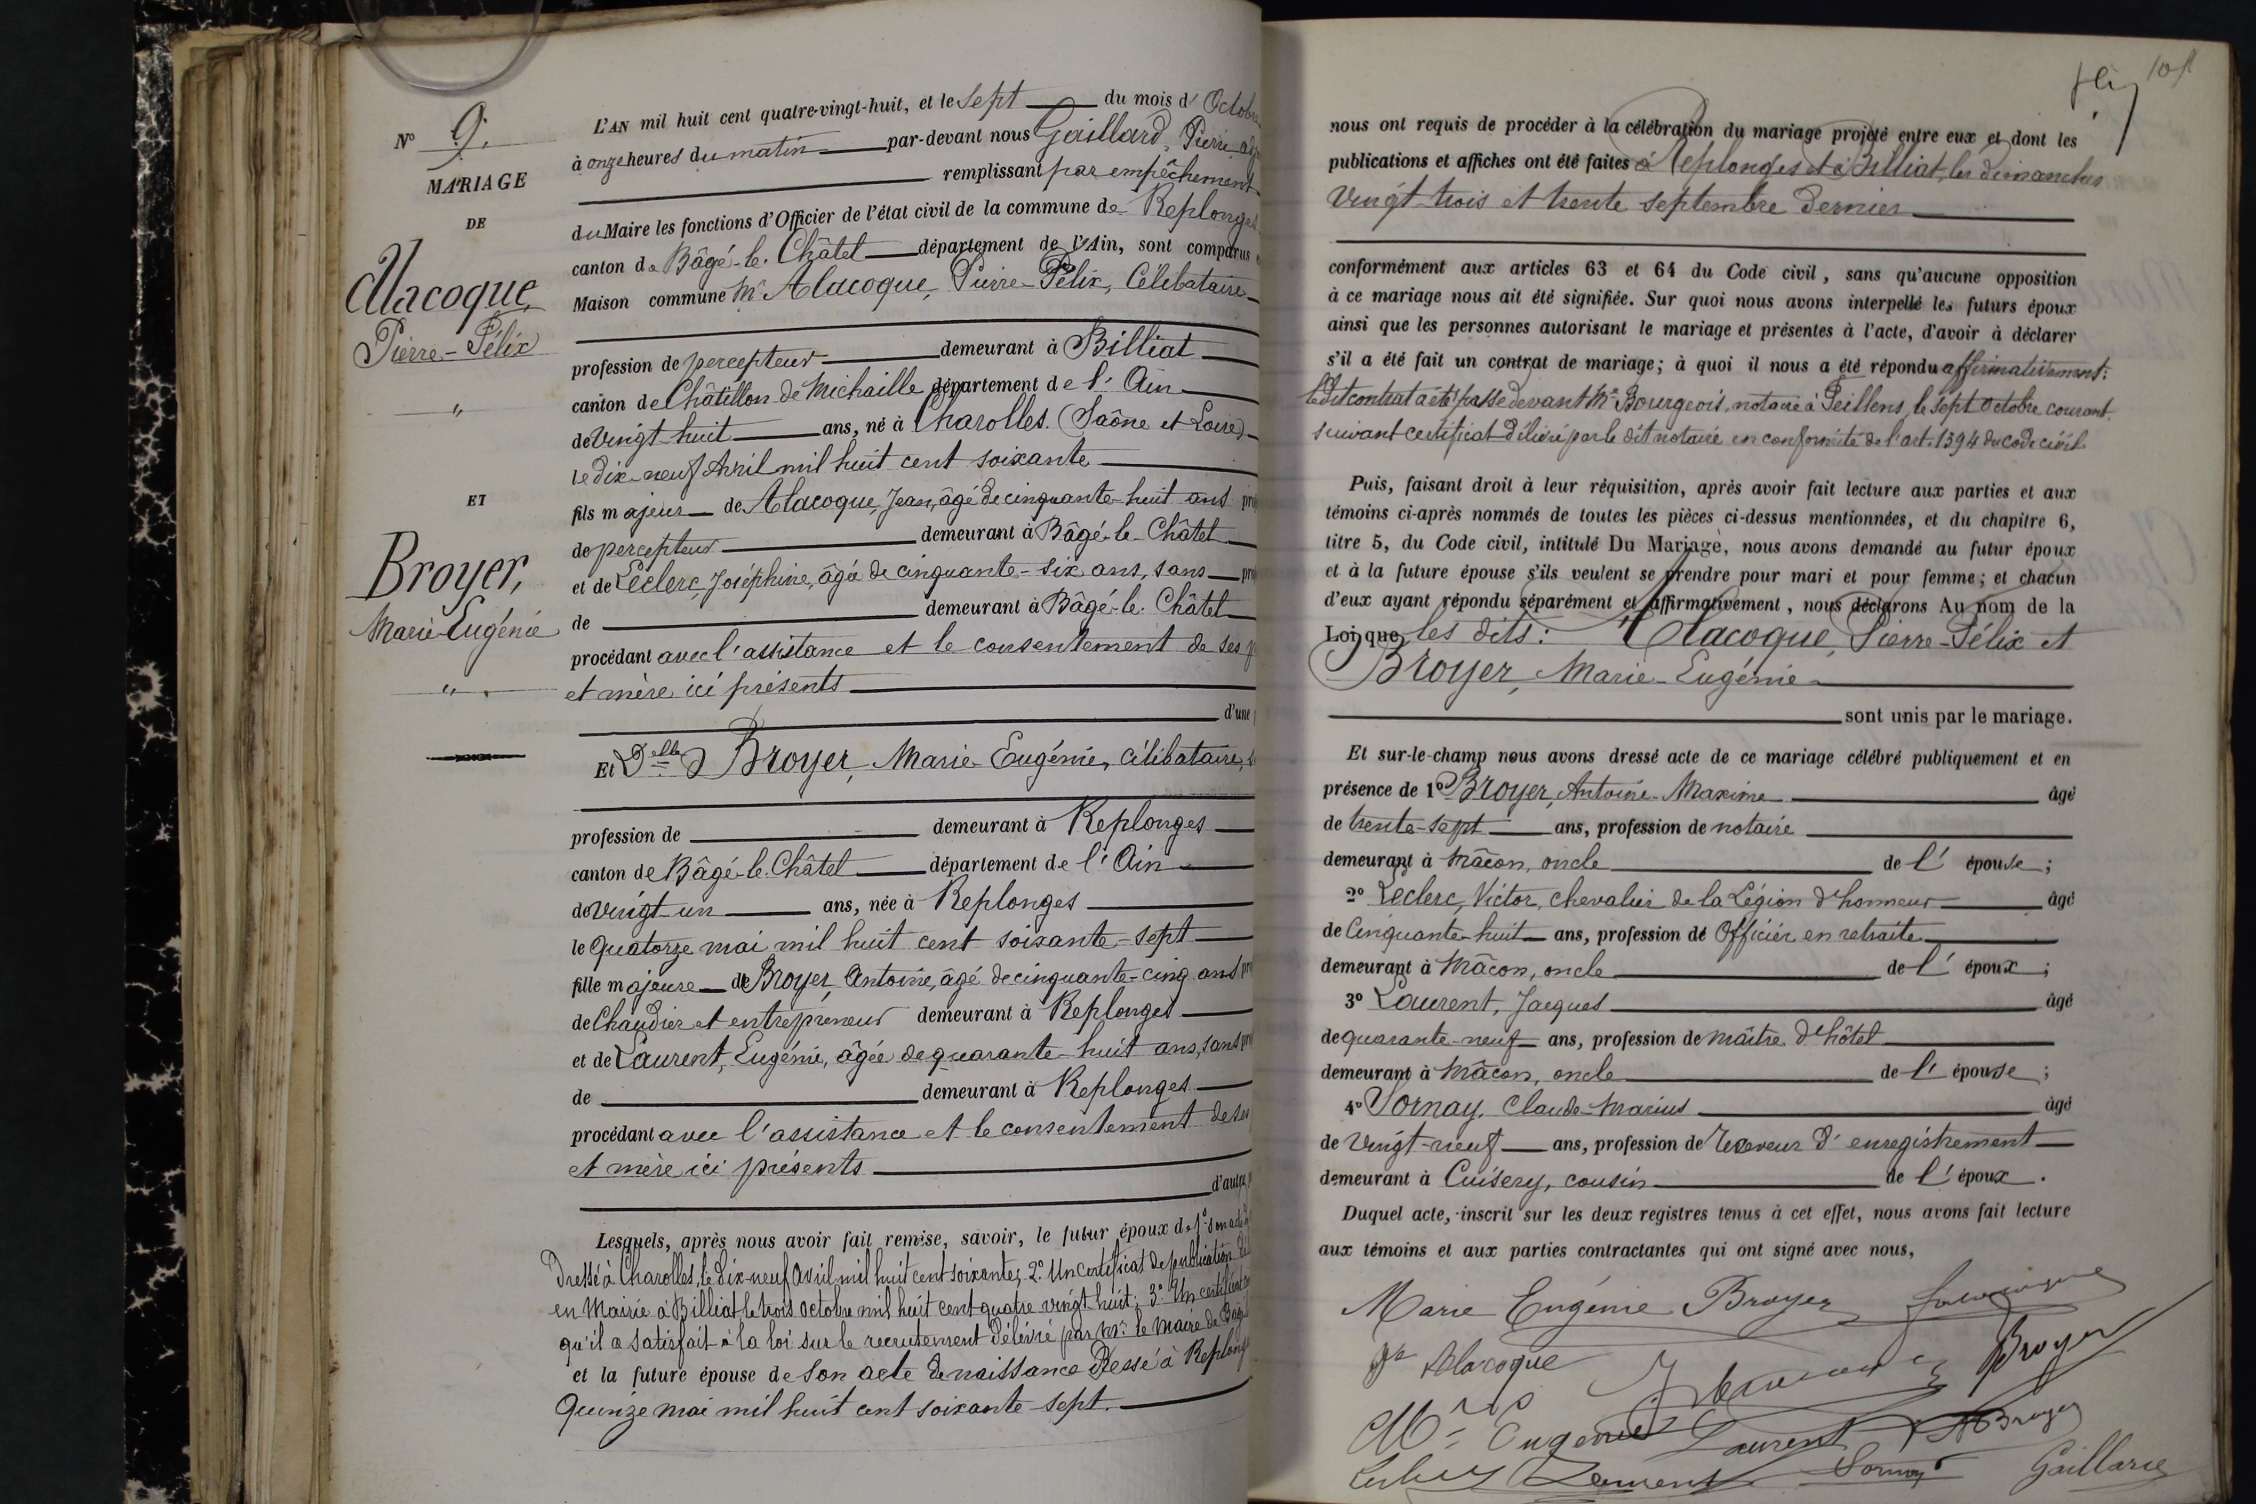 N° 9.
MARIAGE
DE
Alacoque,
Pierre-Félix
"
ET
Broyer,
Marie-Eugénie
"
L'AN mil huit cent quatre-vingt-huit, et le sept du mois d' Octobre
à onze heures du matin par-devant nous Gaillard, Pierre, adj
remplissant par empêchement
du Maire les fonctions d'Officier de l'état civil de la commune de Replonges
canton de Bâgé-le-Châtel département de l'Ain, sont comparus
Maison commune Mr Alacoque, Pierre-Félix, Célibataire
profession de percepteur demeurant à Billiat
canton de Châtillon de Michaille département de l'Ain
de vingt huit ans, né à Charolles. (Saône et Loire)
le dix-neuf Avril mil huit cent soixante
fils majeur de Alacoque, Jean, âgé de cinquante-huit ans pro
de percepteur demeurant à Bâgé-le-Châtel
et de Leclerc, Joséphine, âgée de cinquante-six ans, sans pro
de demeurant à Bâgé-le-Châtel
procédant avec l'assistance et le consentement de ses p
et mère ici présents
d'une
Et Delle Broyer, Marie-Eugénie, célibataire, s
profession de demeurant à Replonges
canton de Bâgé-le-Châtel département de l'Ain
de vingt un ans, née à Replonges
le quatorze mai mil huit cent soixante-sept
fille majeure de Broyer, Antoine, âgé de cinquante-cinq ans pro
de Chaudier et entrepreneur demeurant à Replonges
et de Laurent, Eugénie, âgée de quarante-huit ans, sans pro
de demeurant à Replonges
procédant avec l'assistance et le consentement de ses
et mère ici présents
d'autre
Lesquels, après nous avoir fait remise, savoir, le futur époux de 1° son acte
Dressé à Charolles, le dix-neuf Avril mil huit cent soixante; 2° Un certificat de publication
en Mairie à Billiat le trois octobre mil huit cent quatre vingt huit; 3° Un certificat
qu'il a satisfait à la loi sur le recrutement délivré par Mr le Maire de Bâgé
et la future épouse de son acte de naissance Dressé à Replonges
Quinze mai mil huit cent soixante sept.
nous ont requis de procéder à la célébration du mariage projeté entre eux et dont les
publications et affiches ont été faites à Replonges et à Billiat, les dimanches
vingt-trois et trente septembre dernier
conformément aux articles 63 et 64 du Code civil, sans qu'aucune opposition
à ce mariage nous ait été signifiée. Sur quoi nous avons interpellé les futurs époux
ainsi que les personnes autorisant le mariage et présentes à l'acte, d'avoir à déclarer
s'il a été fait un contrat de mariage; à quoi il nous a été répondu affirmativement:
le dit contrat a été passé devant Me Bourgeois, notaire à Feillens, le sept octobre courant.
suivant certificat délivré par le dit notaire en conformité de l'art. 1394 du code civil
Puis, faisant droit à leur réquisition, après avoir fait lecture aux parties et aux
témoins ci-après nommés de toutes les pièces ci-dessus mentionnées, et du chapitre 6,
titre 5, du Code civil, intitulé Du Mariage, nous avons demandé au futur époux
et à la future épouse s'ils veulent se prendre pour mari et pour femme; et chacun
d'eux ayant répondu séparément et affirmativement, nous déclarons Au nom de la
Loi que les dits: Alacoque, Pierre-Félix et
Broyer, Marie-Eugénie
sont unis par le mariage.
Et sur-le-champ nous avons dressé acte de ce mariage célébré publiquement et en
présence de 1° Broyer, Antoine-Maxime âgé
de trente-sept ans, profession de notaire
demeurant à Mâcon, oncle de l'épouse;
2° Leclerc, Victor, chevalier de la Légion d'honneur âgé
de Cinquante-huit ans, profession de Officier en retraite
demeurant à Mâcon, oncle de l'époux;
3° Laurent, Jacques âgé
de quarante-neuf ans, profession de maître d'hôtel
demeurant à Mâcon, oncle de l'épouse;
4° Sornay, Claude-Marius âgé
de vingt-neuf ans, profession de receveur d'enregistrement
demeurant à Cuisery, cousin de l'époux.
Duquel acte, inscrit sur les deux registres tenus à cet effet, nous avons fait lecture
aux témoins et aux parties contractantes qui ont signé avec nous,
Marie Eugénie Broyer
Alacoque Broyer
Eugénie Laurent Broyer
Laurent Sornay Gaillard